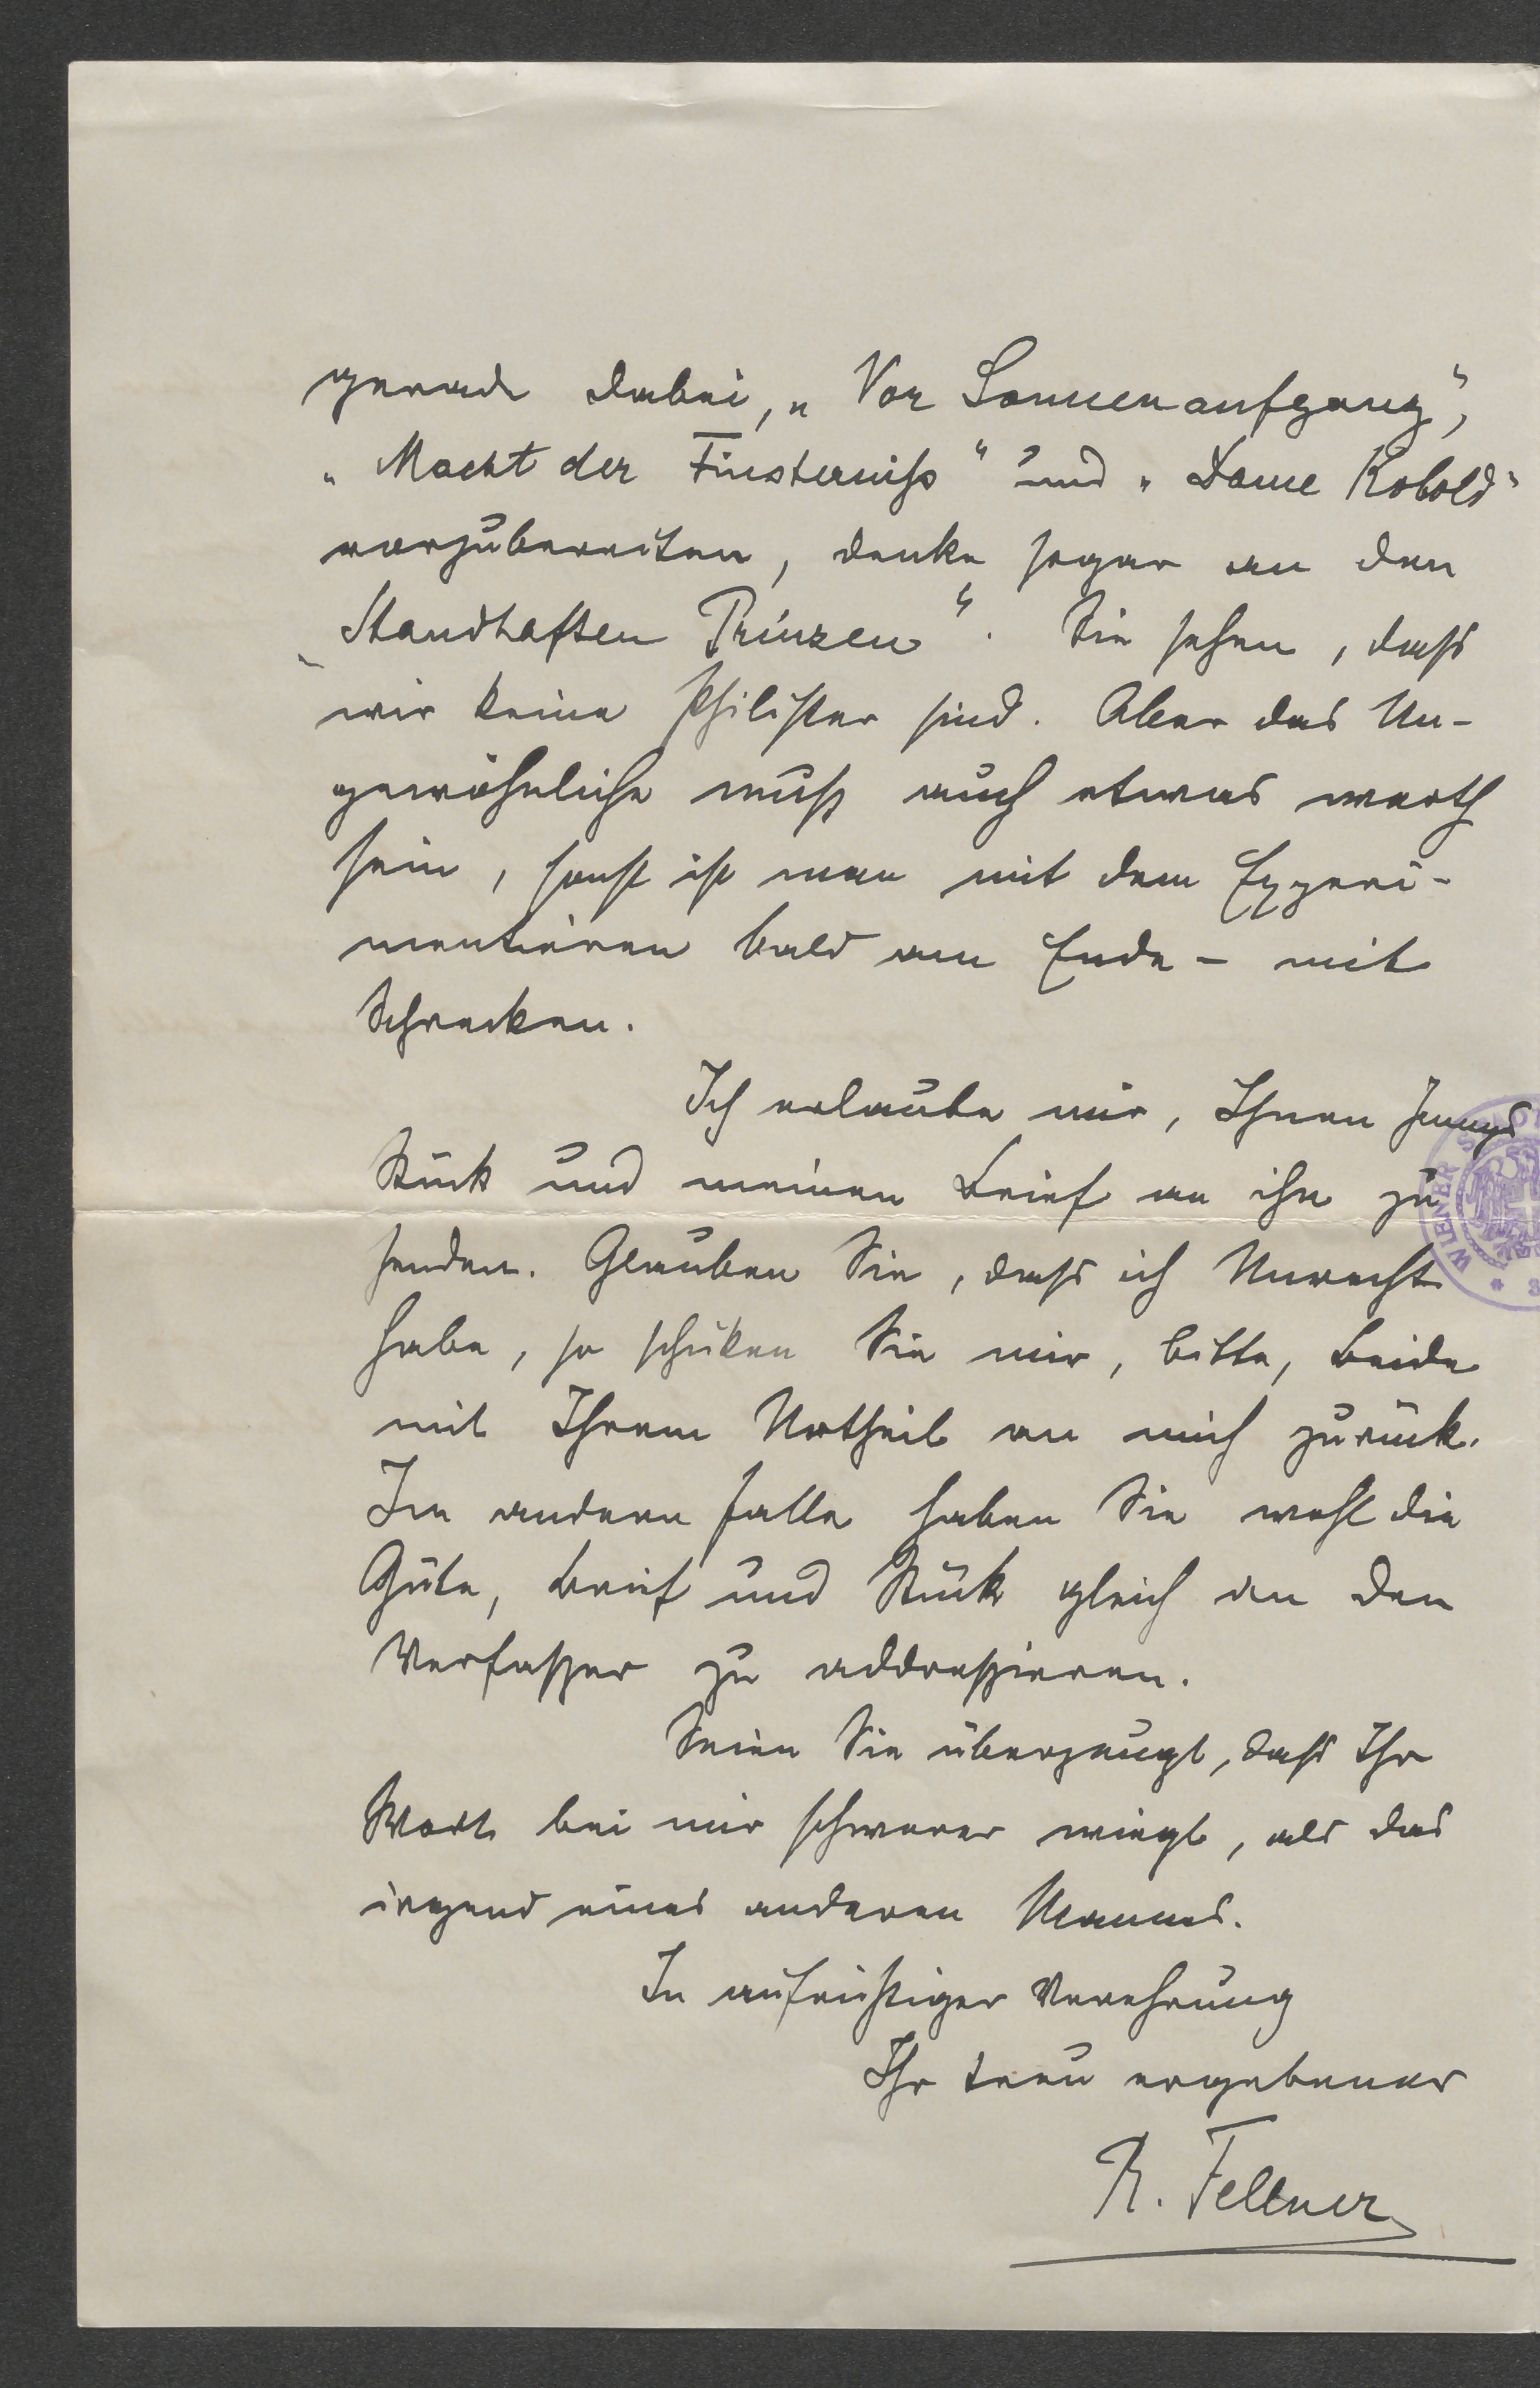 gerade dabei, „Vor Sonnenaufgang“,
„Macht der Finsterniß“ und „Dame Kobold“
vorzubereiten, denke sogar an den
„Standhaften Prinzen“. Sie sehen, dass
wir keine Philister sind. Aber das Un-
gewöhnliche muß auch etwas werth
sein, sonst ist man mit dem Experi-
mentieren bald am Ende – mit
Schrecken.
Ich erlaube mir, Ihnen
Stück und meinen Brief an ihn zu
senden. Glauben Sie, dass ich Unrecht
habe, so schicken Sie mir, bitte, beide
mit Ihrem Urtheil an mich zurück.
Im andern Falle haben Sie wohl die
Güte, Brief und Stück gleich an den
Verfaßer zu addreßieren.
Seien Sie überzeugt, dass Ihr
Wort bei mir schwerer wiegt, als das
irgend eines anderen Mannes.
In aufrichtiger Verehrung
Ihr treu ergebener
R. Fellner
WIENER